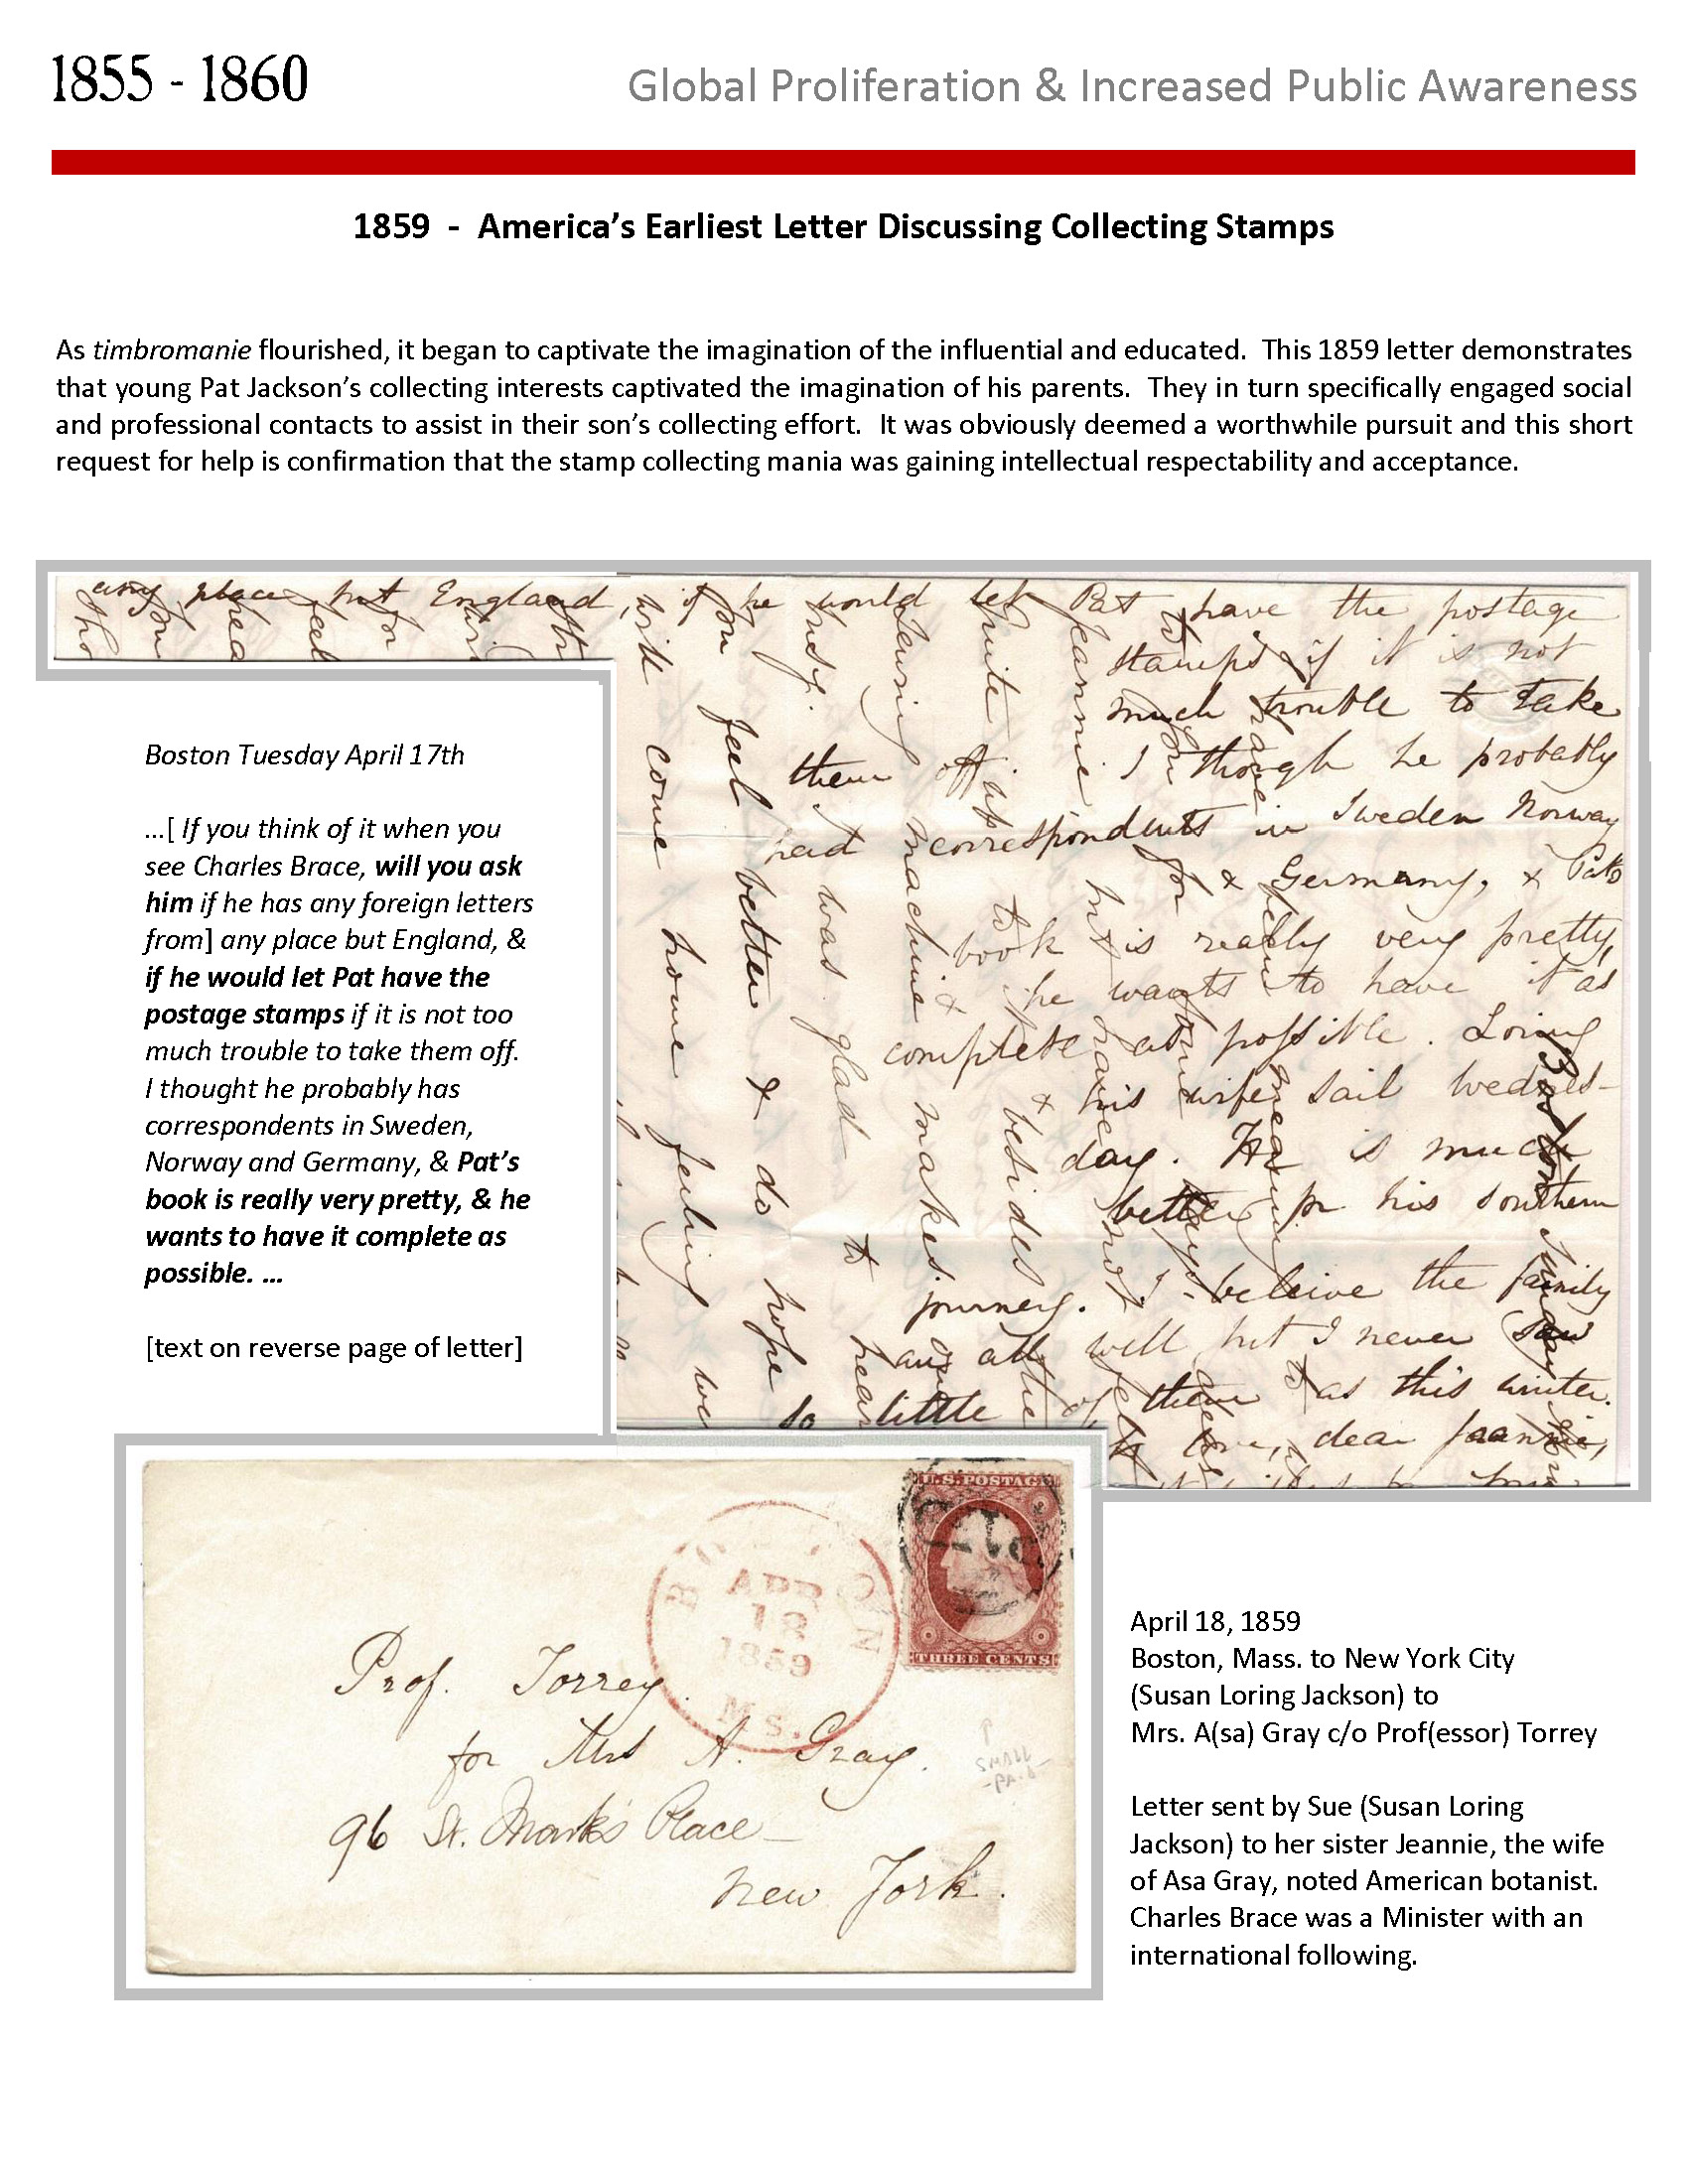 1855 - 1860
Global Proliferation & Increased Public Awareness
1859 - America's Earliest Letter Discussing Collecting Stamps
As timbromanie flourished, it began to captivate the imagination of the influential and educated. This 1859 letter demonstrates
that young Pat Jackson's collecting interests captivated the imagination of his parents. They in turn specifically engaged social
and professional contacts to assist in their son's collecting effort. It was obviously deemed a worthwhile pursuit and this short
request for help is confirmation that the stamp collecting mania was gaining intellectual respectability and acceptance.
any place but England, if he would let Pat have the postage
stamps if it is not
much trouble to take
them off. I though he probably
had correspondents in Sweden Norway
& Germany, & Pats
book is really very pretty,
& he wants to have it as
complete as possible. Loring
& his wife sail Wednes-
day. He is much
better for his southern
journey. I beleive the family
are all well but I never saw
so little of them as this winter.
love, dear Jeannie,
Boston Tuesday
you feel better & do hope
will come home feeling
was glad to hear
sewing machine makes
besides
Jeannie
Boston Tuesday April 17th
...[ If you think of it when you
see Charles Brace, will you ask
him if he has any foreign letters
from] any place but England, &
if he would let Pat have the
postage stamps if it is not too
much trouble to take them off.
I thought he probably has
correspondents in Sweden,
Norway and Germany, & Pat's
book is really very pretty, & he
wants to have it complete as
possible. ...
[text on reverse page of letter]
U.S. POSTAGE
THREE CENTS
BOSTON
APR
18
1859
MS.
Prof. Torrey.
for Mrs A. Gray.
96 St. Mark's Place
New York.
SMALL
-PAID-
April 18, 1859
Boston, Mass. to New York City
(Susan Loring Jackson) to
Mrs. A(sa) Gray c/o Prof(essor) Torrey
Letter sent by Sue (Susan Loring
Jackson) to her sister Jeannie, the wife
of Asa Gray, noted American botanist.
Charles Brace was a Minister with an
international following.